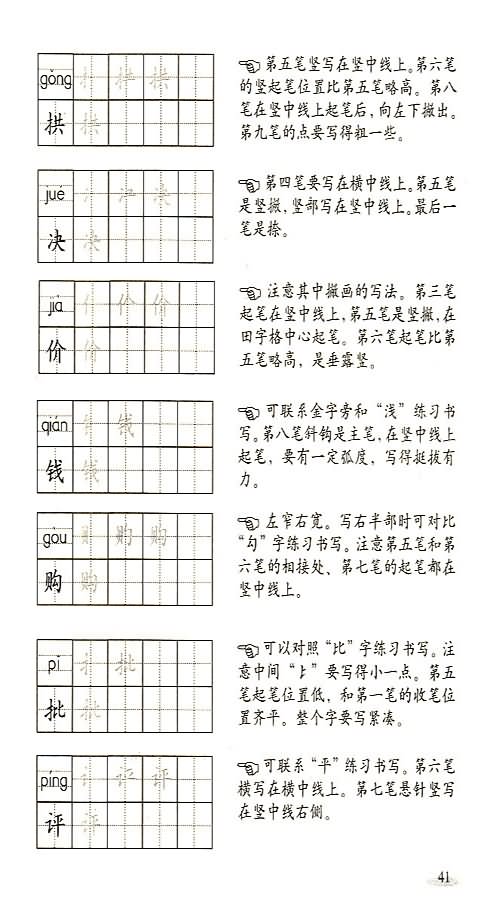 gǒng
拱
☜第五笔竖写在竖中线上。第六笔
的竖起笔位置比第五笔略高。第八
笔在竖中线上起笔后，向左下撇出。
第九笔的点要写得粗一些。
jué
决
☜第四笔要写在横中线上。第五笔
是竖撇，竖部写在竖中线上。最后一
笔是捺。
jià
价
☜注意其中撇画的写法。第三笔
起笔在竖中线上，第五笔是竖撇，在
田字格中心起笔。第六笔起笔比第
五笔略高，是垂露竖。
qián
钱
☜可联系金字旁和“浅”练习书
写。第八笔斜钩是主笔，在竖中线上
起笔，要有一定弧度，写得挺拔有
力。
gòu
购
☜左窄右宽。写右半部时可对比
“勾”字练习书写。注意第五笔和第
六笔的相接处、第七笔的起笔都在
竖中线上。
pī
批
☜可以对照“比”字练习书写。注
意中间“⺊”要写得小一点。第五
笔起笔位置低，和第一笔的收笔位
置齐平。整个字要写紧凑。
píng
评
☜可联系“平”练习书写。第六笔
横写在横中线上。第七笔悬针竖写
在竖中线右侧。
41